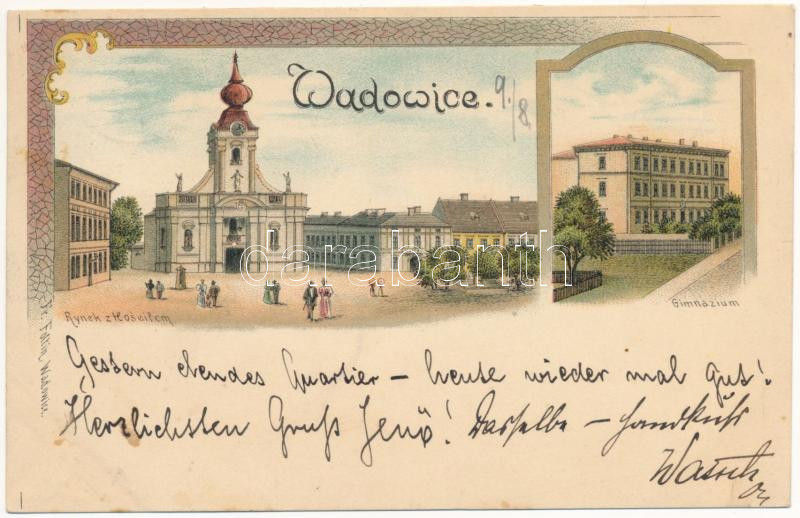 Wadowice. 9./8.
Rynek z Kościłem
Gimnazium
Fr. Foltin, Wadowice.
darabanth
Gestern elendes Quartier – heute wieder mal gut!
Herzlichsten Gruß Jenö! Dasselbe – Handkuß